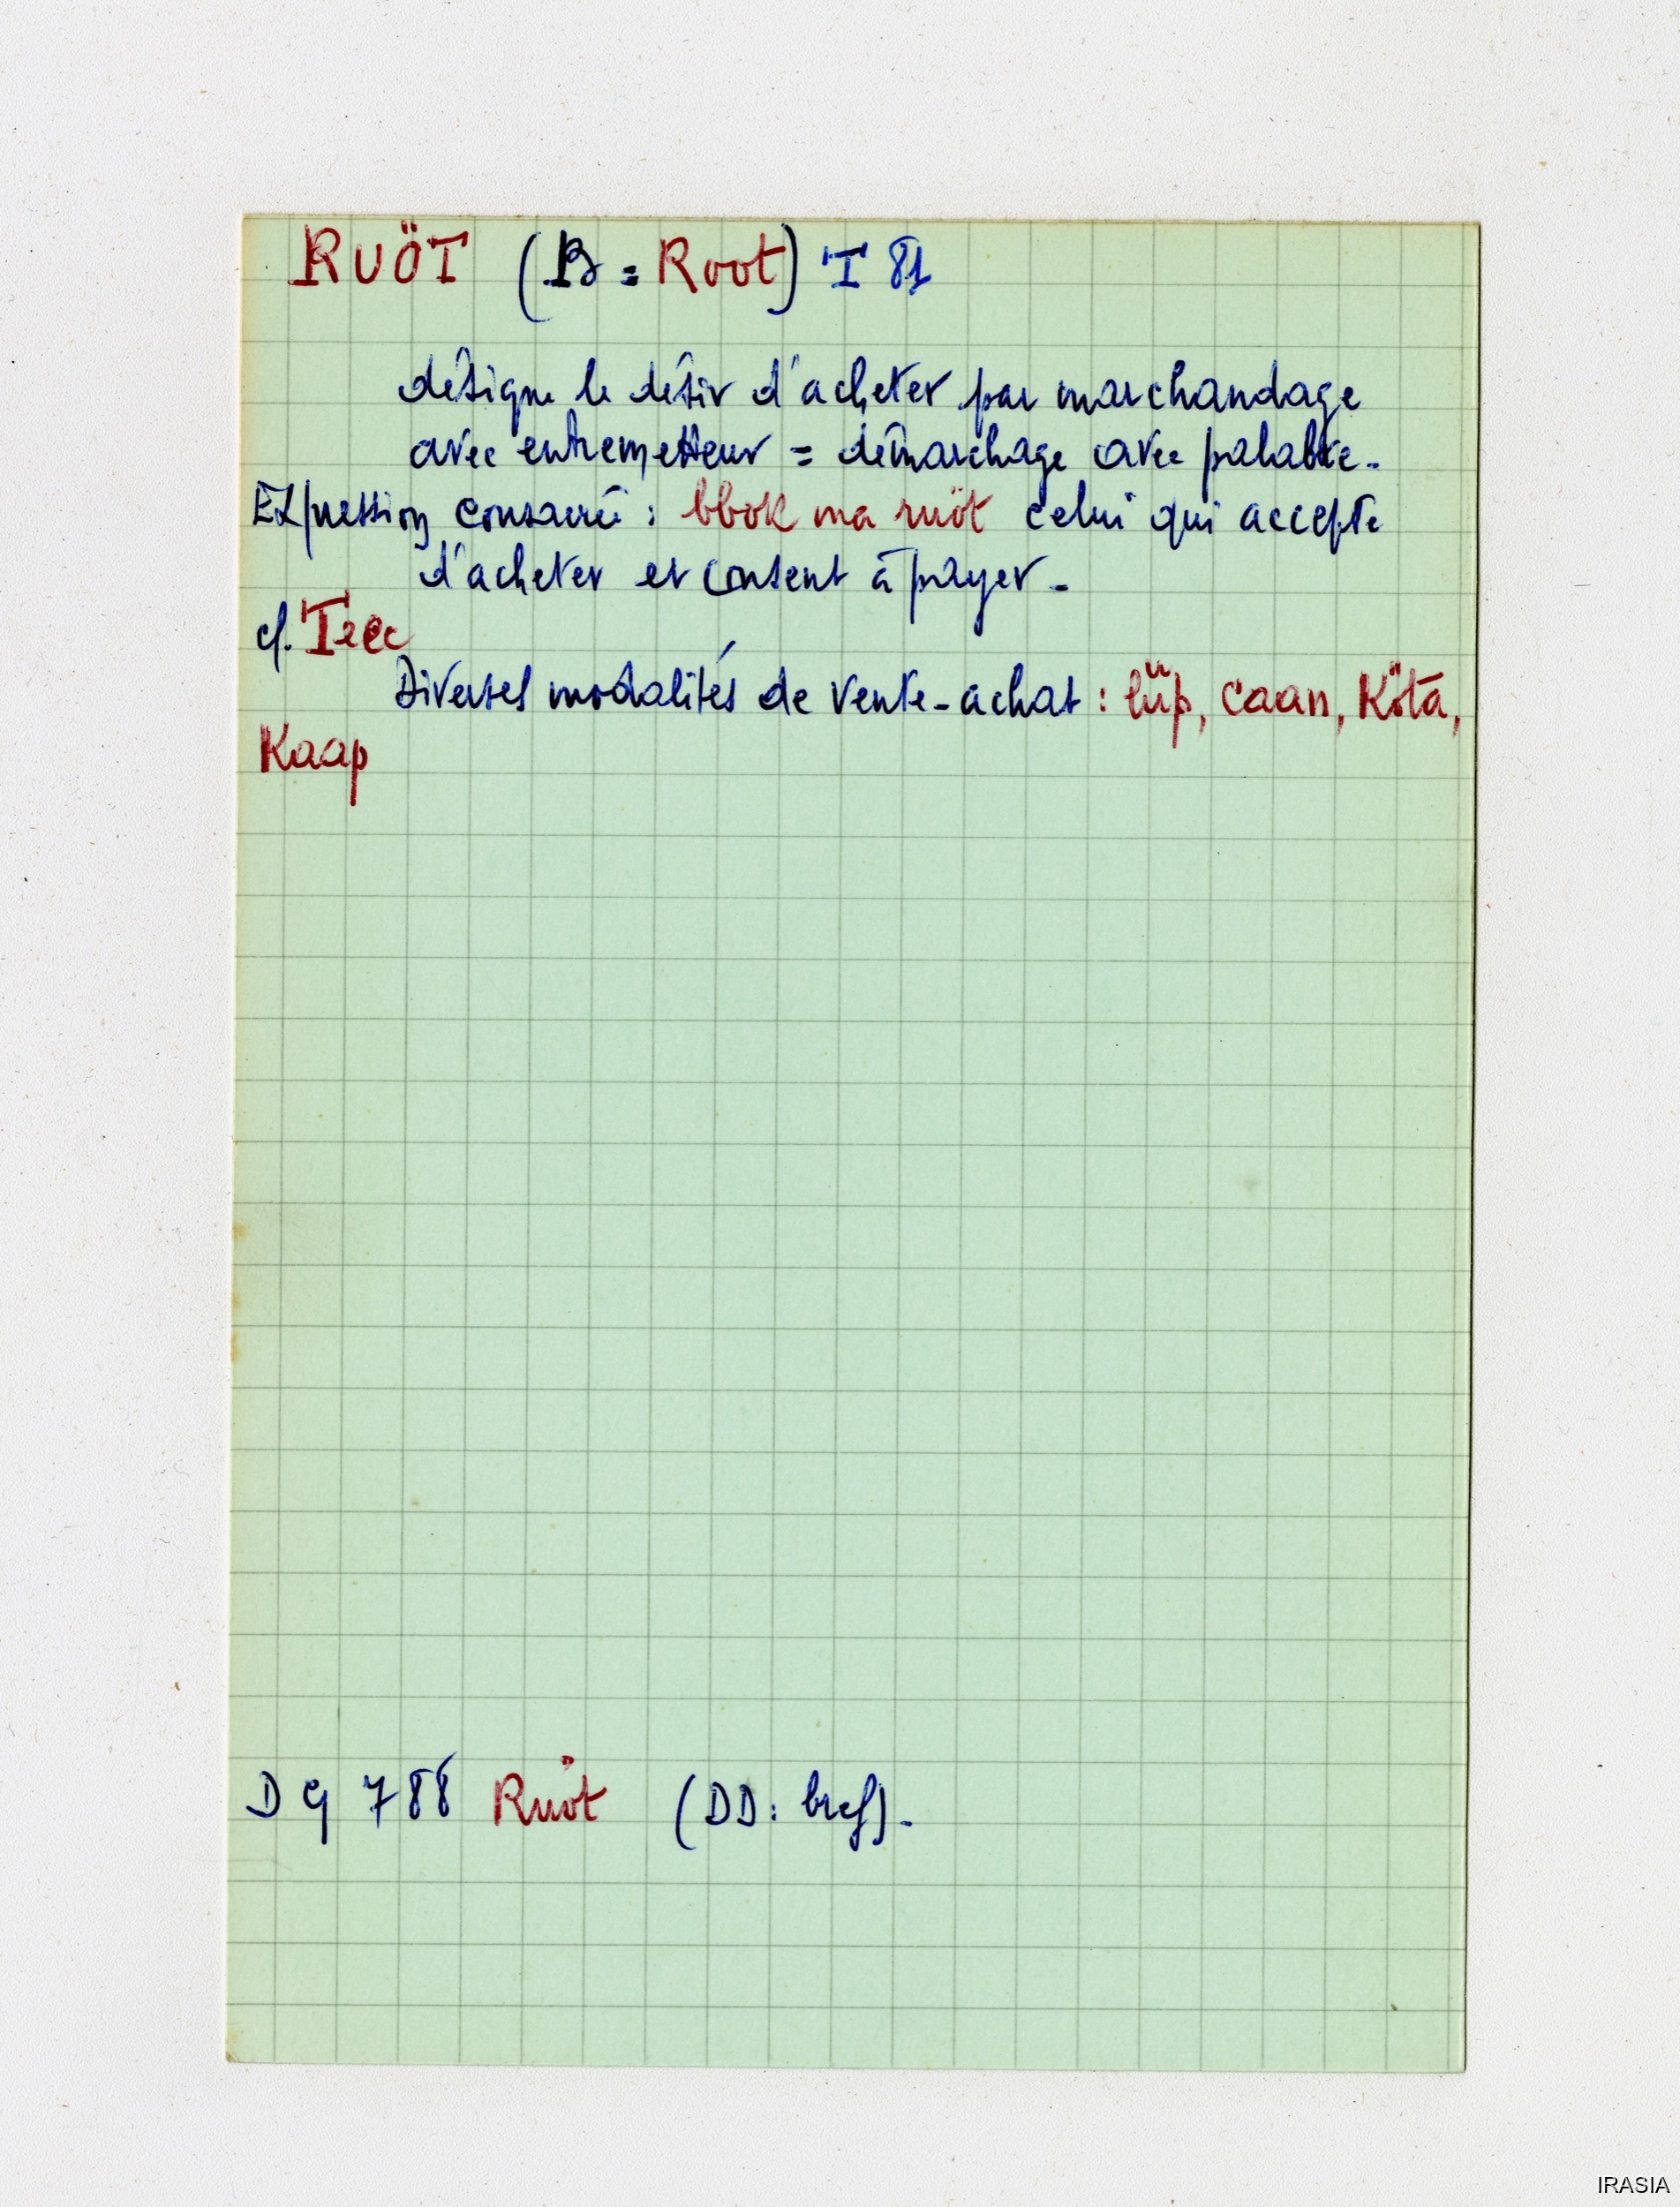 RUÖT (B = Root) T 81
désigne le désir d'acheter par marchandage
avec entremetteur = démarchage avec palabre.
Expression consacrée : bbok ma ruöt celui qui accepte
d'acheter et consent à payer.
cf. Tec
Diverses modalités de vente-achat : lüp, caan, Köta,
Kaap
DG 788 Ruöt (DD : bref).
IRASIA